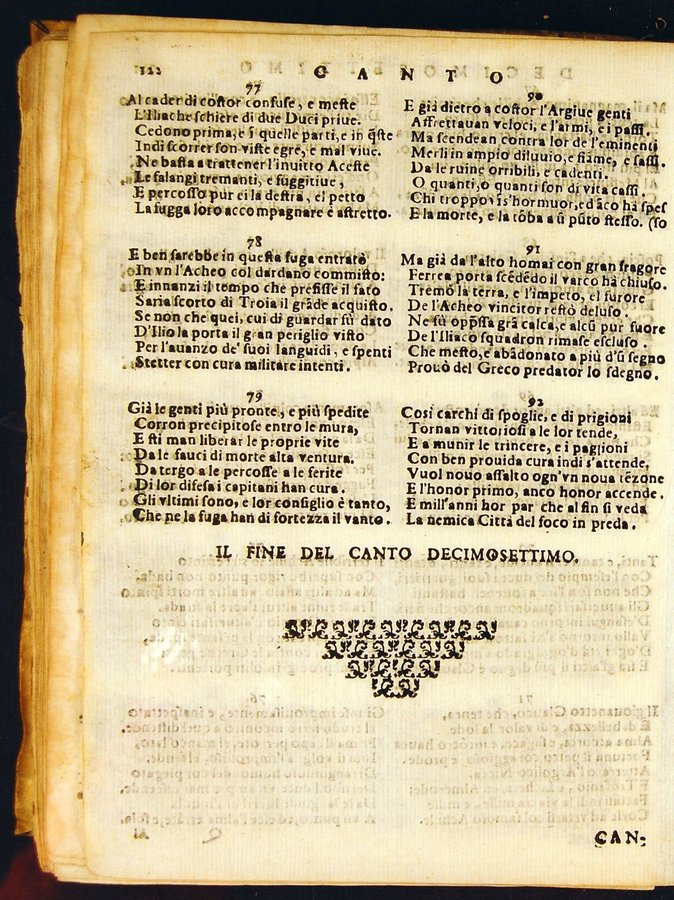 122 CANTO
77
Al cader di costor confuse, e meste
L'Iliache schiere di due Duci priue.
Cedono prima, e sì quelle parti, e in q̃ste
Indi scorrer son viste egre, e mal viue.
Ne basta a trattener l'inuitto Aceste
Le falangi tremanti, e fuggitiue,
E percosso pur ei la destra, el petto
La fugga loro accompagnare è astretto.
78
E ben sarebbe in questa fuga entrato
In vn l'Acheo col dardano commisto:
E innanzi il tempo che prefisse il fato
Saria scorto di Troia il grãde acquisto.
Se non che quei, cui di guardar fù dato
D'Ilio la porta il gran periglio visto
Per l'auanzo de' suoi languidi, e spenti
Stetter con cura militare intenti.
79
Già le genti più pronte, e più spedite
Corron precipitose entro le mura,
E sti man liberar le proprie vite
Da le fauci di morte alta ventura.
Da tergo a le percosse a le ferite
Di lor difesa i capitani han cura.
Gli vltimi sono, e lor consiglio è tanto,
Che ne la fuga han di fortezza il vanto.
90
E già dietro a costor l'Argiue genti
Affrettauan veloci, e l'armi, e i passi.
Ma scendean contra lor de l'eminenti
Merli in ampio diluuio, e fiãme, e sassi.
Da le ruine orribili, e cadenti.
O quanti, o quanti son di vita cassi.
Chi troppo is'hor muor, ed ãco hà spes
E la morte, e la tõba a ũ pũto stesso. (so
91
Ma già da l'alto homai con gran fragore
Ferrea porta scẽdẽdo il varco hà chiuso.
Tremò la terra, e l'impeto, el furore
De l'Acheo vincitor restò deluso.
Ne fù opp̃ssa grã calca, e alcũ pur fuore
De l'Iliaco squadron rimase escluso.
Che mesto, e abãdonato a più d'ũ segno
Prouò del Greco predator lo sdegno.
92
Così carchi di spoglie, e di prigioni
Tornan vittoriosi a le lor tende,
E a munir le trincere, e i paglioni
Con ben prouida cura indi s'attende.
Vuol nouo assalto ogn'vn noua tẽzone
E l'honor primo, anco honor accende.
E mill'anni hor par che al fin si veda
La nemica Città del foco in preda.
IL FINE DEL CANTO DECIMOSETTIMO.
CAN-